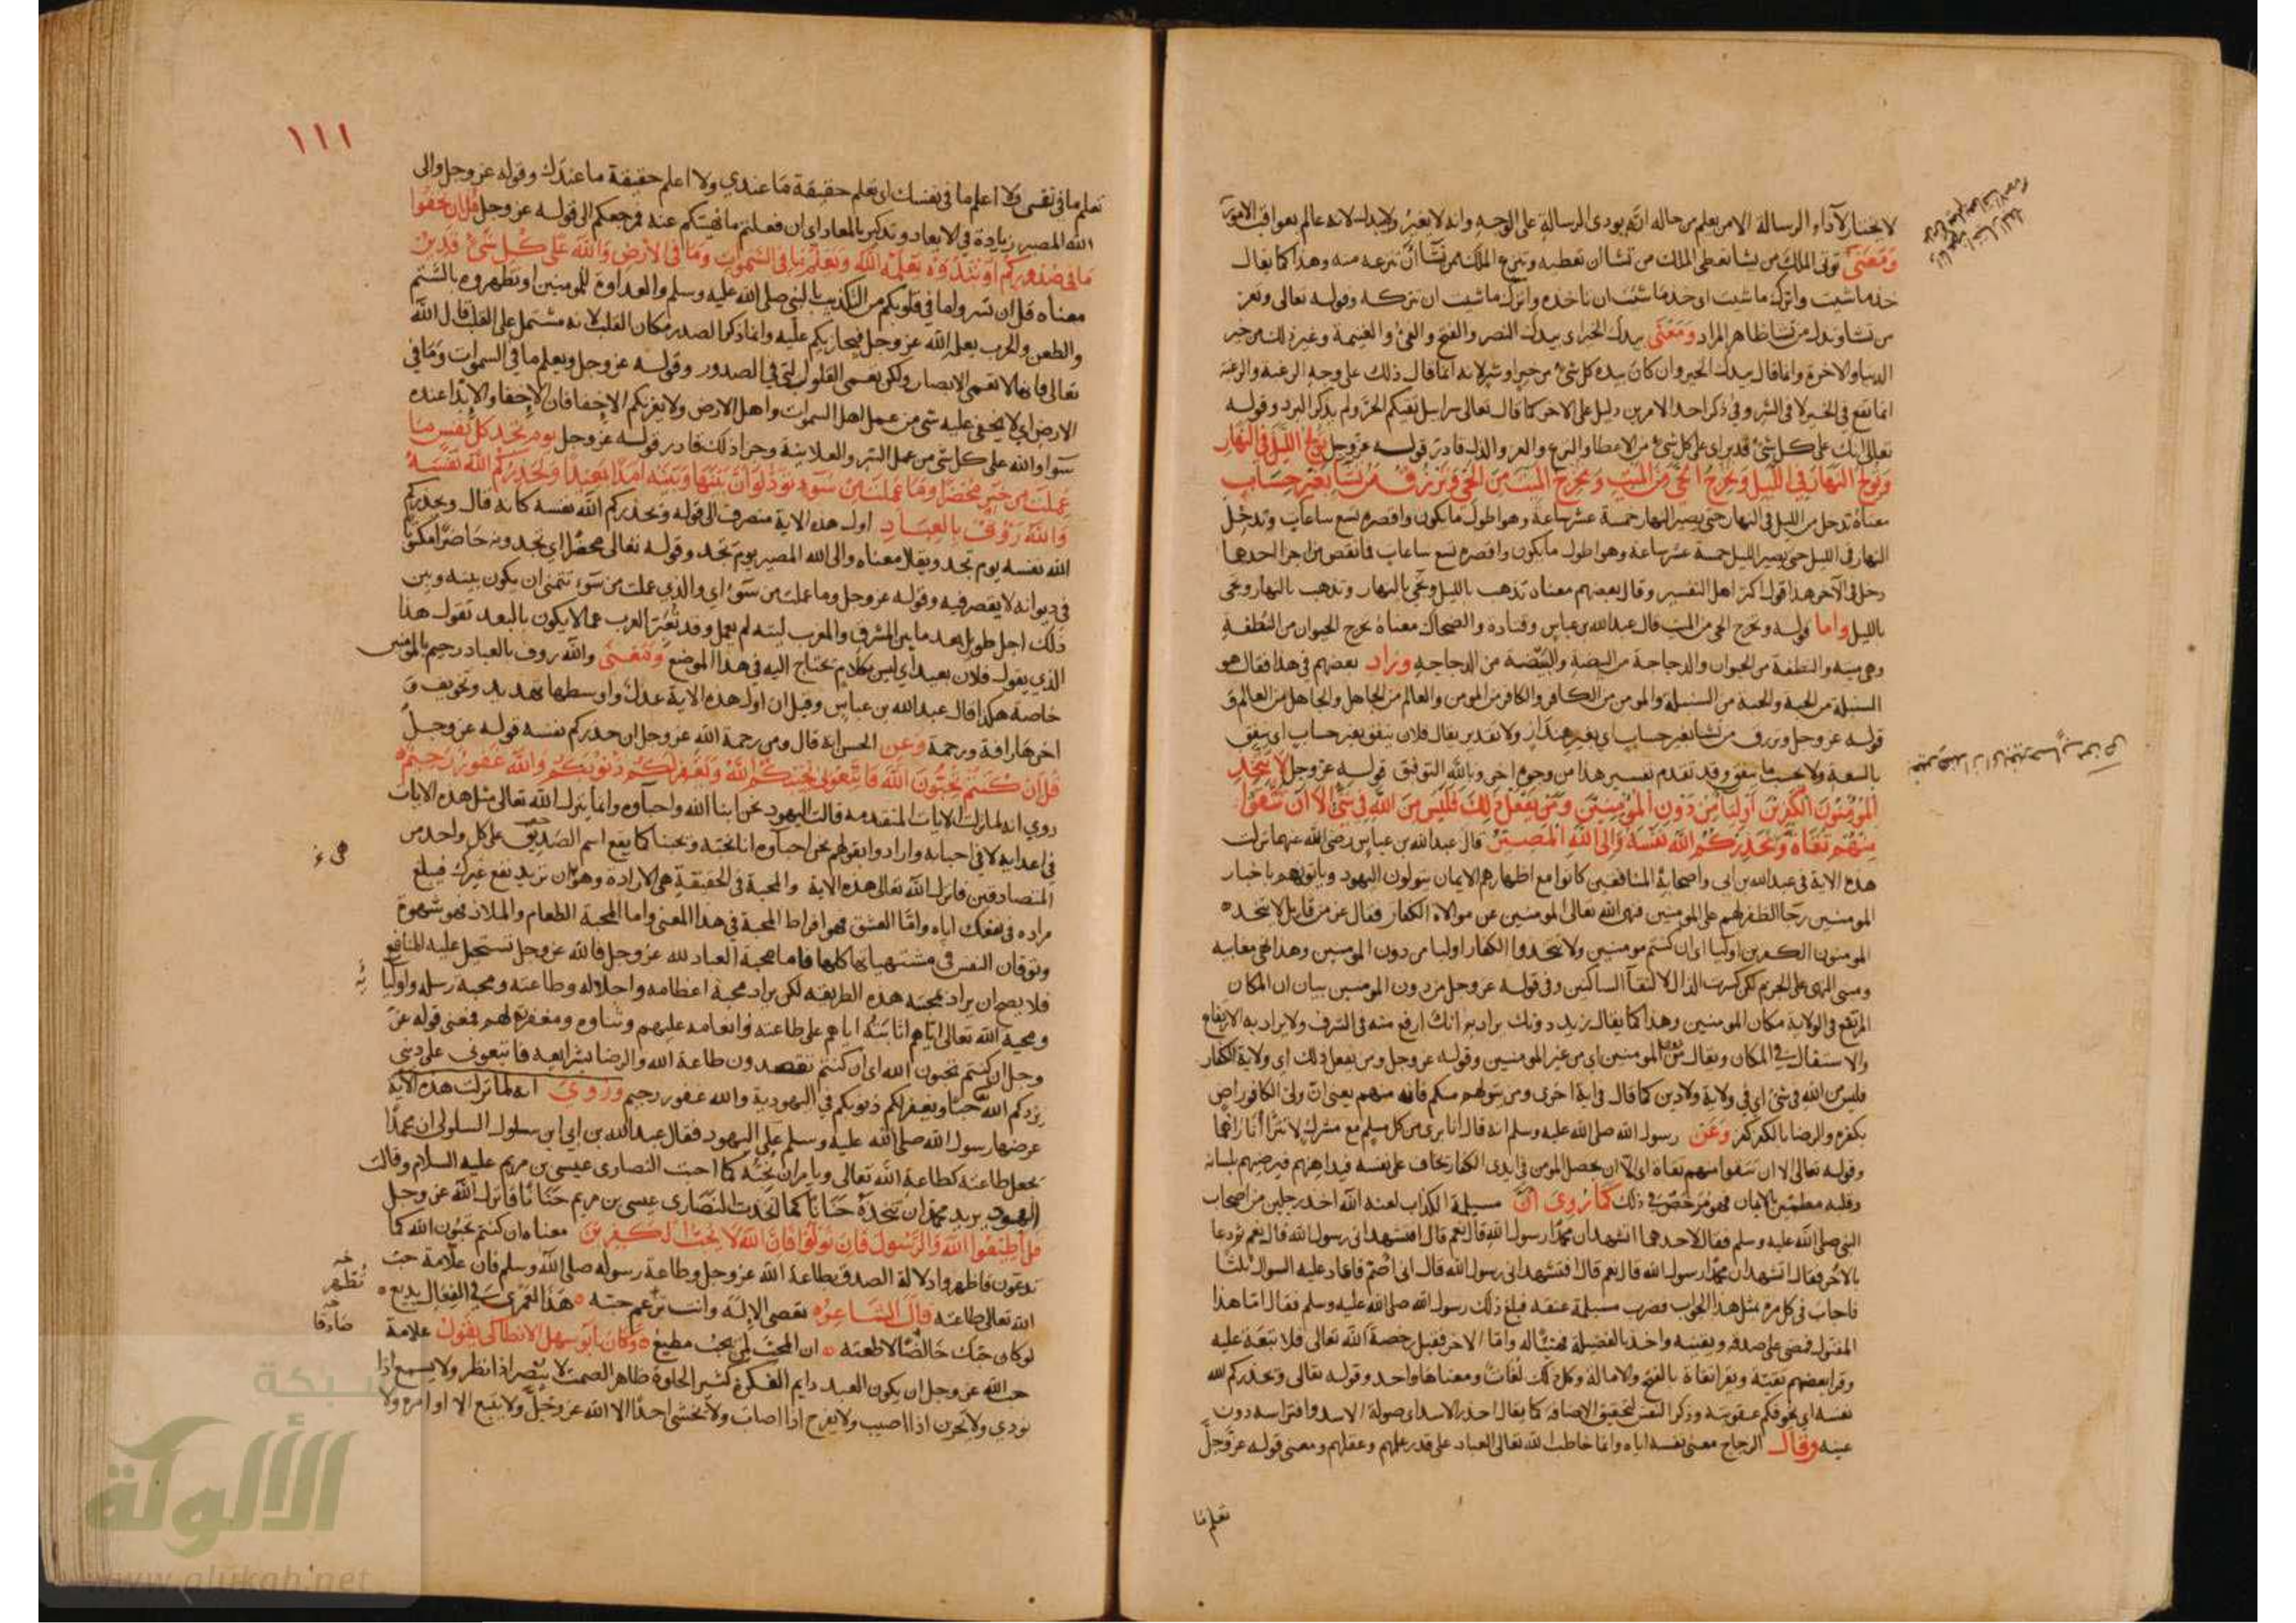 لا يختار لآداء الرسالة الا من يعلم من حاله انه يودى الرسالة على الوجه وانه لا يغير ولا يبدل لانه عالم بعواقب الامور
وَمَعْنَى توتى الملك من تشا تعطى الملك من تشا ان تعطيه وتنزع الملك ممن تشا ان تنزعه منه وهذا كما يقال
خذ ما شيت واترك ما شيت اى خذ ما شئت ان تاخذه واترك ما شيت ان تتركه وقوله تعالى وتعز
من تشا وتذل من تشا ظاهر المراد ومَعْنَى بيدك الخير اى بيدك النصر والفتح والفئ والغنيمة وغير ذلك من خير
الدنيا والاخرة وانما قال بيدك الخير وان كان بيده كل شئ من خير او شر لانه انما قال ذلك على وجه الرغبة والرغبة
انما تقع في الخير لا فى الشر وفي ذكر احد الامرين دليل على الاخر كما قال تعالى سرابيل تقيكم الحر ولم يذكر البرد وقوله
تعالى انك على كل شئ قدير اى على كل شئ من الاعطا والنزع والعز والذل قادر قوله عز وجل تولج الليل في النهار
وتولج النهار في الليل وتخرج الحي من الميت وتخرج الميت من الحي وترزق من تشا بغير حساب
معناه تدخل من الليل في النهار حتى يصير النهار خمسة عشر ساعة وهو اطول ما يكون واقصره تسع ساعات وتدخل
النهار فى الليل حتى يصير الليل خمسة عشر ساعة وهو اطول ما يكون واقصره تسع ساعات فما نقص من اجزا احدهما
دخل في الآخر هذا قول اكثر اهل التفسير وقال بعضهم معناه تذهب بالليل وتجى بالنهار وتذهب بالنهار وتجى
بالليل واما قوله وتخرج الحى من الميت قال عبد الله بن عباس وقتادة والضحاك معناه تخرج الحيوان من النطفة
وهى ميتة والنطفة من الحيوان والدجاجة من البيضة والبيضة من الدجاجه وزاد بعضهم في هذا فقال هو
السنبلة من الحبة والحبة من السنبلة والمومن من الكافر والكافر من المومن والعالم من الجاهل والجاهل من العالم و
قوله عز وجل وترزق من تشا بغير حساب اى بغير هنداز ولا تقدير يقال فلان ينفق بغير حساب اى ينفق
بالسعة ولا يحسب ما ينفق وقد تقدم تفسير هذا من وجوه اخر وبالله التوفيق قوله عز وجل لا يتخذ
المومنون الكفرين اوليا من دون المومنين ومن يفعل ذلك فليس من الله في شي الا ان تتقوا
منهم تقاة ويحذركم الله نفسه والى الله المصير قال عبد الله بن عباس رضى الله عنهما نزلت
هذه الاية في عبد الله بن ابى واصحابه المنافقين كانوا مع اظهارهم الايمان يتولون اليهود وياتونهم باخبار
المومنين رجا الظفر لهم على المومنين فنهى الله تعالى المومنين عن موالاة الكفار فقال عز من قائل لا يتخذ
المومنون الكفرين اوليا اى ان كنتم مومنين ولا تتخذوا الكفار اوليا من دون المومنين وهذا نهى مغايبه
ومبنى النهى على الجزم لكن كسرت الذال لالتقآ الساكنين وفى قوله عز وجل من دون المومنين بيان ان المكان
المرتفع في الولاية مكان المومنين وهذا كما يقال زيد دونك يراد به انك ارفع منه في الشرف ولا يراد به الارتفاع
والاستفال في المكان ويقال من دون المومنين اى من غير المومنين وقوله عز وجل ومن يفعل ذلك اى ولاية الكفار
فليس من الله في شئ اى في ولاية ولا دين كما قال في اية اخرى ومن يتولهم منكم فانه منهم يعنى ان ولى الكافر راض
بكفره والرضا بالكفر كفر وعن رسول الله صلى الله عليه وسلم انه قال انا برى من كل مسلم مع مشرك لا تترا انا راهما
وقوله تعالى الا ان تتقوا منهم تقاة اى الا ان يحصل المومن في ايدى الكفار يخاف على نفسه فيداهنهم فيرضيهم بلسانه
وقلبه مطمئن بالايمان فهو مرخص في ذلك كما روى ان مسيلمة الكذاب لعنه الله اخذ رجلين من اصحاب
النبي صلى الله عليه وسلم فقال لاحدهما اتشهد ان محمدا رسول الله قال نعم قال افتشهد انى رسول الله قال نعم ثم دعا
بالاخر فقال اتشهد ان محمدا رسول الله قال نعم قال افتشهد انى رسول الله قال انى اصم فاعاد عليه السوال ثلثا
فاجاب في كل مرة بمثل هذا الجواب فضرب مسيلمة عنقه فبلغ ذلك رسول الله صلى الله عليه وسلم فقال اما هذا
المقتول فمضى على صدقه ويقينه واخذ بالفضيلة فهنيئا له واما الاخر فقبل رخصة الله تعالى فلا تبعة عليه
وقرا بعضهم تقيّة ويقرا تقاة بالفتح والامالة وكل ذلك لغات ومعناها واحد وقوله تعالى ويحذركم الله
نفسه اى يخوفكم عقوبته وذكر النفس لتحقيق الاضافه كما يقال احذر الاسد اى صولة الاسد وافتراسه دون
عينه وقال الزجاج معنى نفسه اياه وانما خاطب الله تعالى العباد على قدر علمهم وعقلهم ومعنى قوله عز وجل
تعلم ما
١١١
تعلم ما فى نفسى ولا اعلم ما فى نفسك اى تعلم حقيقة ما عندي ولا اعلم حقيقة ما عندك وقوله عز وجل والى
الله المصير زيادة في الابعاد وتذكير بالمعاد اى ان فعلتم ما نهيتكم عنه فمرجعكم الى قوله عز وجل قل ان تخفوا
ما فى صدوركم او تبدوه يعلمه الله ويعلم ما في السموات وما في الارض والله على كل شئ قدير
معناه قل ان تسروا ما في قلوبكم من التكذيب بالنبى صلى الله عليه وسلم والعداوة للمومنين او تظهروه بالشتم
والطعن والحرب يعلمه الله عز وجل فيجازيكم عليه وانما ذكر الصدر مكان القلب لانه مشتمل على القلب قال الله
تعالى فانها لا تعمى الابصار ولكن تعمى القلوب التى في الصدور وقوله عز وجل ويعلم ما في السموات وما في
الارض اى لا يخفى عليه شى من عمل اهل السموات واهل الارض ولا يغرنكم الاخفا فان الاخفا والابدا عنده
سوا والله على كل شى من عمل السر والعلانية وجزا ذلك قادر قوله عز وجل يوم تجد كل نفس ما
عملت من خير محضرا وما عملت من سوء تود لو ان بينها وبينه امدا بعيدا ويحذركم الله نفسه
والله رؤف بالعباد اول هذه الاية منصرف الى قوله ويحذركم الله نفسه كانه قال ويحذركم
الله نفسه يوم تجد ويقال معناه والى الله المصير يوم تجد وقوله تعالى محضرا اى تجدونه حاضرا مكتوبا
في ديوانه لا يقصر فيه وقوله عز وجل وما عملت من سوء اى والذي عملت من سوء تتمنى ان يكون بينه وبين
ذلك اجل طويل بعد ما بين المشرق والمغرب ليته لم يعمل وقد تعبر العرب عما لا يكون بالبعد تقول هذا
الذي يقول فلان بعيد اى ليس بكلام يحتاج اليه في هذا الموضع ومعنى والله روف بالعباد رحيم بالمومنين
خاصة هكذا قال عبد الله بن عباس وقيل ان اول هذه الاية عدل واوسطها تهديد وتخويف و
اخرها رافة ورحمة وعن الحسن انه قال ومن رحمة الله عز وجل ان حذركم نفسه قوله عز وجل
قل ان كنتم تحبون الله فاتبعونى يحببكم الله ويغفر لكم ذنوبكم والله غفور رحيم
روي انه لما نزلت الايات المتقدمه قالت اليهود نحن ابنا الله واحباوه وانما ينزل الله تعالى مثل هذه الايات
في اعدايه لا في احبايه وارادوا بقولهم نحن احباوه انا نحبه ويحبنا كما يقع اسم الصديق على كل واحد من
المتصادقين فانزل الله تعالى هذه الاية والمحبة في الحقيقة هى الارادة وهو ان تريد نفع غيرك فيبلغ
مراده في نفعك اياه واما العشق فهو افراط المحبة في هذا المعنى واما المحبة الطعام والملاذ فهو شهوة
وتوقان النفس في مشتهياتها كلها فاما محبة العباد لله عز وجل فالله عز وجل تستحيل عليه المنافع
فلا يصح ان يراد بمحبته هذه الطريقة لكن يراد محبة اعظامه واجلاله وطاعته ومحبة رسله واوليا
ومحبة الله تعالى اياهم اثابته اياهم على طاعته وانعامه عليهم وثناوه ومغفرته لهم فمعنى قوله عز
وجل ان كنتم تحبون الله اى ان كنتم تقصدون طاعة الله والرضا بشرايعه فاتبعونى على دينى
يزدكم الله حبا ويغفر لكم ذنوبكم في اليهودية والله غفور رحيم وروى انه لما نزلت هذه الاية
عرضها رسول الله صلى الله عليه وسلم على اليهود فقال عبد الله بن ابي ابن سلول السلولى ان محمدا
يجعل طاعته كطاعة الله تعالى ويامر ان نحبه كما احبت النصارى عيسى بن مريم عليه السلام وقالت
اليهود يريد محمد ان نتخذه حنانا كما اتخذت النصارى عيسى بن مريم حنانا فانزل الله عز وجل
قل اطيعوا الله والرسول فان تولوا فان الله لا يحب الكفرين معناه ان كنتم تحبون الله كما
تدعون فاظهروا دلالة الصدق بطاعة الله عز وجل وطاعة رسوله صلى الله وسلم فان علامة حب
الله تعالى طاعته قال الشاعر تعصى الاله وانت تزعم حبه هذا لعمرى في الفعال بديع
لو كان حبك خالصا لاطعته ان المحب لمن يحب مطيع وكان ابو سهل الانطاكى يقول علامة
حب الله عز وجل ان يكون العبد دايم الفكرة كثير الخلوة ظاهر الصمت لا يبصر اذا نظر ولا يسمع اذا
نودي ولا يحزن اذا اصيب ولا يفرح اذا اصاب ولا يخشى احدا الا الله عز وجل ولا يتبع الا اوامره ولا
تظهر
صادقا
شبكة
الألوكة
www.alukah.net